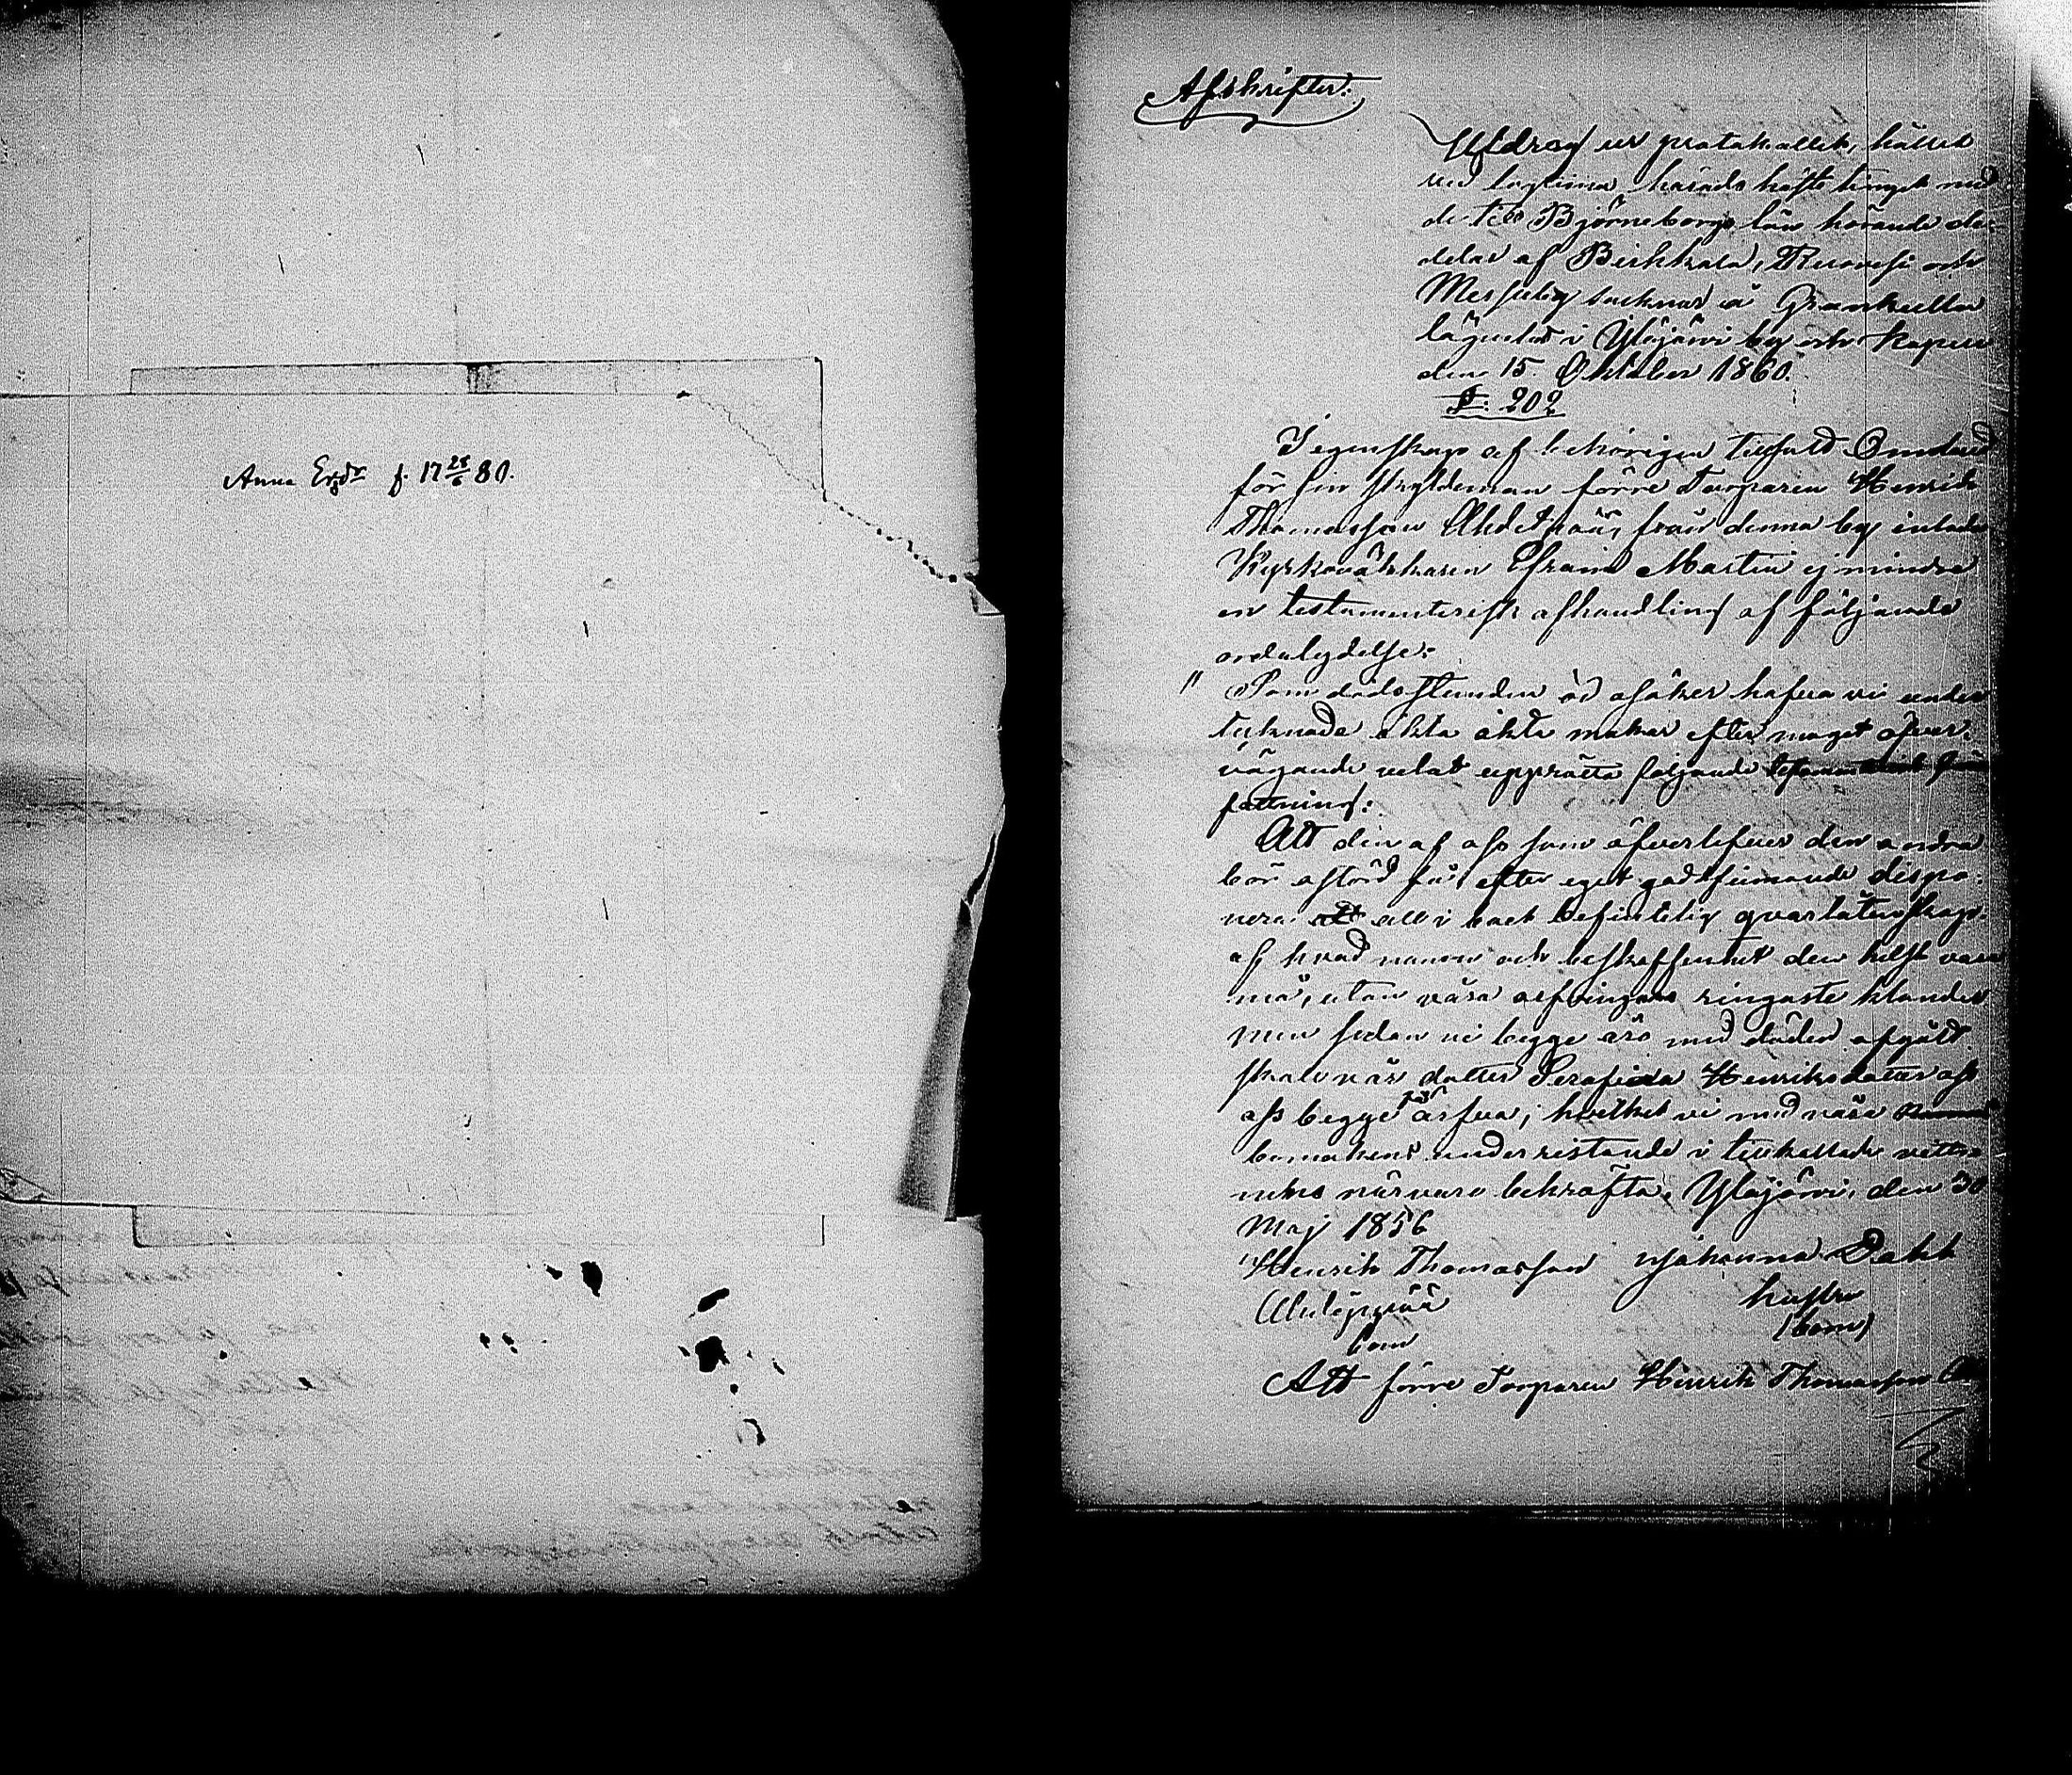 Anna Ersdr f. 17 25/6 80.
Afskrifter:
Utdrag ur protokollet, hållet
vid lagtima härads höste tinget med
de till Björneborgs län hörande de-
delar af Birkkala, Ruovesi och
Messuby socknar å Grankulla
lägenhet i Ylöjärvi by och kapell
den 15. Oktober 1860.
§. 202
I egenskap af behörigen tillsatt Ombud
för sin skyldeman förre Torparen Henrik
Thomasson från denna by inlade
Kyrkoväktaren Efraim Martin ej mindre
en testamentarisk afhandling af följande
ordalydelse:
" Som dödsstunden är osäker hafva vi under
tecknade äkta äkta makar efter moget öfver-
vägande velat upprätta följande
fattning:
Att den af oss som öfverlefver den andra
bör ostörd få efter eget godtfinnande dispo-
nera all i boet befintelig qvarlåtenskap
af hvad namn och beskaffenhet den helst vara
må, utan våra arfvingars ringaste klander
men sedan vi begge äro med döden afgått
skall vår dotter Serafina Henriksdotter
oss begge få ärfva; hvilket vi med våra
bomärkens underristande i tillkallade vitt-
nens närvaro bekräfta, Ylöjärvi, den 30
Maj 1856
Henrik Thomasson Johanna
(bom)
bom
Att förre Torparen Henrik Thomasson